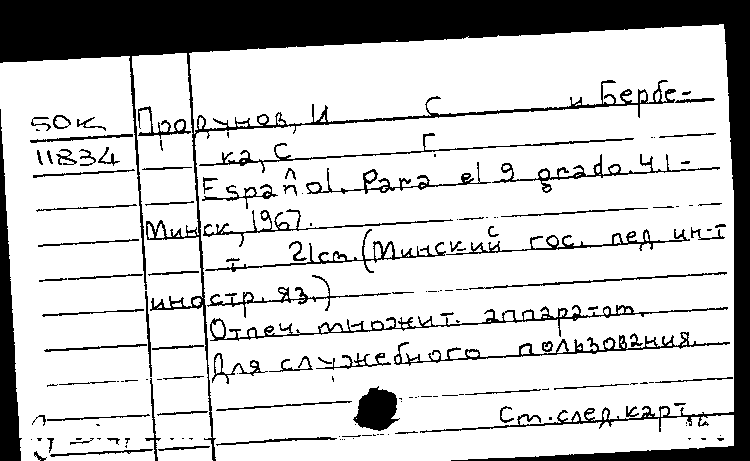 50к Продунов, И С и Бербе-
11834 ка, С Г.
Español. Para el 9 grado. Ч.1-
Минск, 1967.
т. 21cm. (Минский гос. пед ин-т
иностр. яз.)
Отпеч. множит. аппаратом.
Для служебного пользования.
См. след. карт.